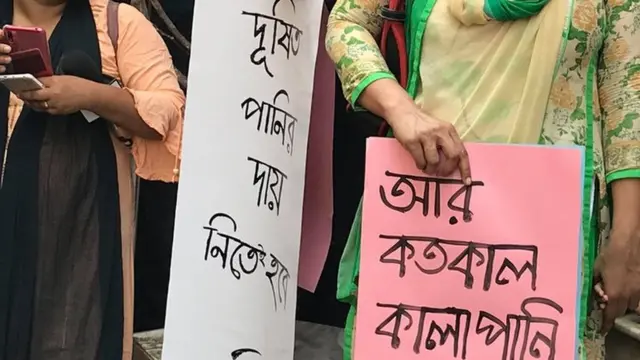 দূষিত
পানির
দায়
নিতেই হবে
আর
কতকাল
কালাপানি